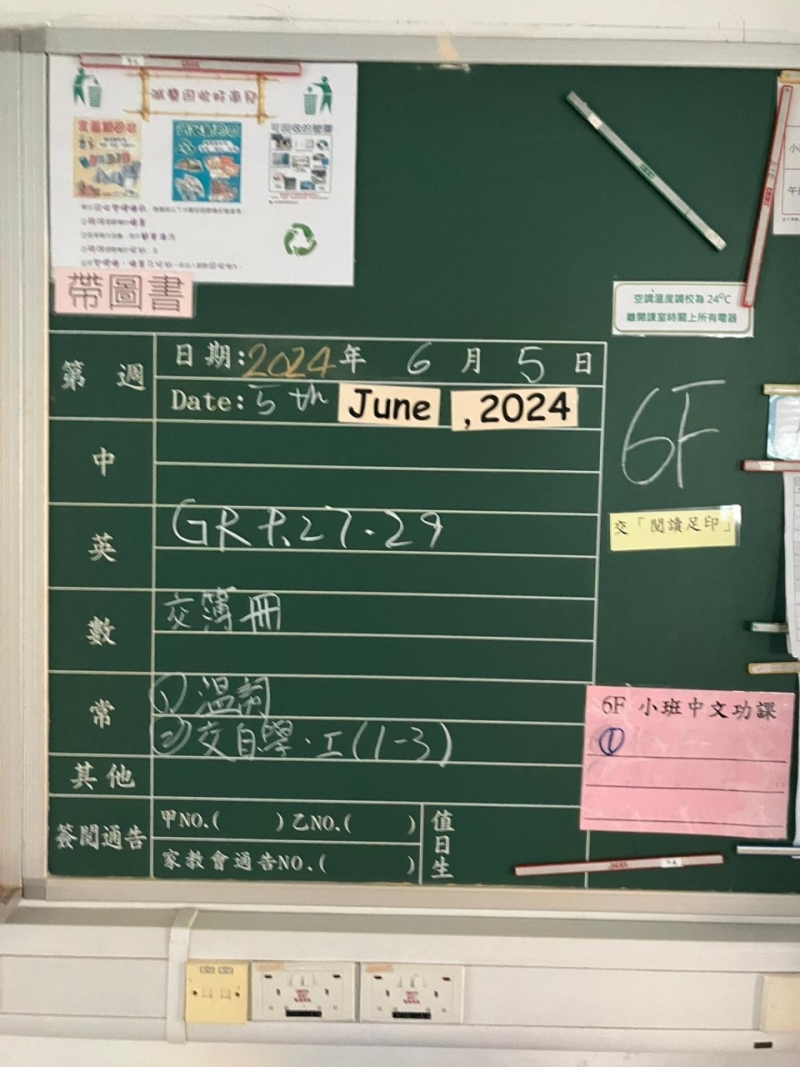 減廢回收好商兒
可回收的塑膠
帶圖書
空調溫度調校為 24℃
離開課室時關上所有電器
第 週
日期:2024年 6 月 5 日
Date: 5 th June , 2024
中
6F
英
GR P.27-29
交「閱讀足印」
數
交簿冊
常
① 溫詞
② 交自學.工(1-3)
6F 小班中文功課
①
其他
簽閱通告
甲NO.( )乙NO.( )
家教會通告NO.( )
值日生